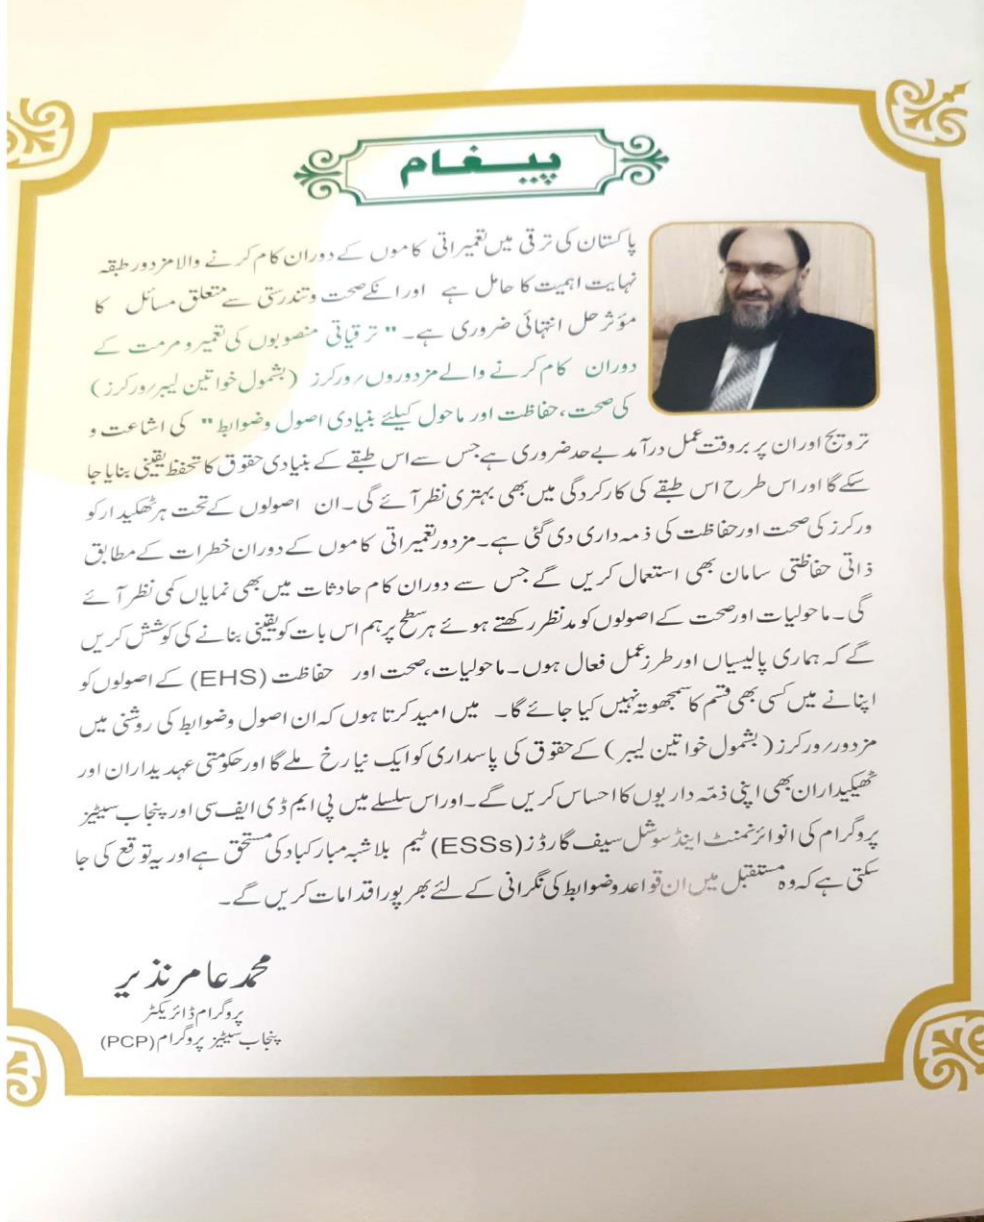 پیغام
پاکستان کی ترقی میں تعمیراتی کاموں کے دوران کام کرنے والا مزدور طبقہ
نہایت اہمیت کا حامل ہے اور انکے صحت وتندرستی سے متعلق مسائل کا
مؤثر حل انتہائی ضروری ہے۔ " ترقیاتی منصوبوں کی تعمیر و مرمت کے
دوران کام کرنے والے مزدوروں/ورکرز (بشمول خواتین لیبر/ورکرز)
کی صحت، حفاظت اور ماحول کیلئے بنیادی اصول وضوابط " کی اشاعت و
ترویج اور ان پر بروقت عمل درآمد بے حد ضروری ہے جس سے اس طبقے کے بنیادی حقوق کا تحفظ یقینی بنایا جا
سکے گا اور اس طرح اس طبقے کی کارکردگی میں بھی بہتری نظر آئے گی۔ ان اصولوں کے تحت ہر ٹھکیدار کو
ورکرز کی صحت اور حفاظت کی ذمہ داری دی گئی ہے۔ مزدور تعمیراتی کاموں کے دوران خطرات کے مطابق
ذاتی حفاظتی سامان بھی استعمال کریں گے جس سے دوران کام حادثات میں بھی نمایاں کمی نظر آئے
گی۔ ماحولیات اور صحت کے اصولوں کو مدنظر رکھتے ہوئے ہر سطح پر ہم اس بات کو یقینی بنانے کی کوشش کریں
گے کہ ہماری پالیسیاں اور طرز عمل فعال ہوں۔ ماحولیات، صحت اور حفاظت (EHS) کے اصولوں کو
اپنانے میں کسی بھی قسم کا سمجھوتہ نہیں کیا جائے گا۔ میں امید کرتا ہوں کہ ان اصول وضوابط کی روشنی میں
مزدور/ورکرز (بشمول خواتین لیبر) کے حقوق کی پاسداری کو ایک نیا رخ ملے گا اور حکومتی عہدیداران اور
ٹھیکیداران بھی اپنی ذمّہ داریوں کا احساس کریں گے۔ اور اس سلسلے میں پی ایم ڈی ایف سی اور پنجاب سیٹیز
پروگرام کی انوائرنمنٹ اینڈ سوشل سیف گارڈز (ESSs) ٹیم بلاشبہ مبارکباد کی مستحق ہے اور یہ توقع کی جا
سکتی ہے کہ وہ مستقبل میں ان قواعد وضوابط کی نگرانی کے لئے بھر پور اقدامات کریں گے۔
محمد عامر نذیر
پروگرام ڈائریکٹر
پنجاب سیٹیز پروگرام (PCP)